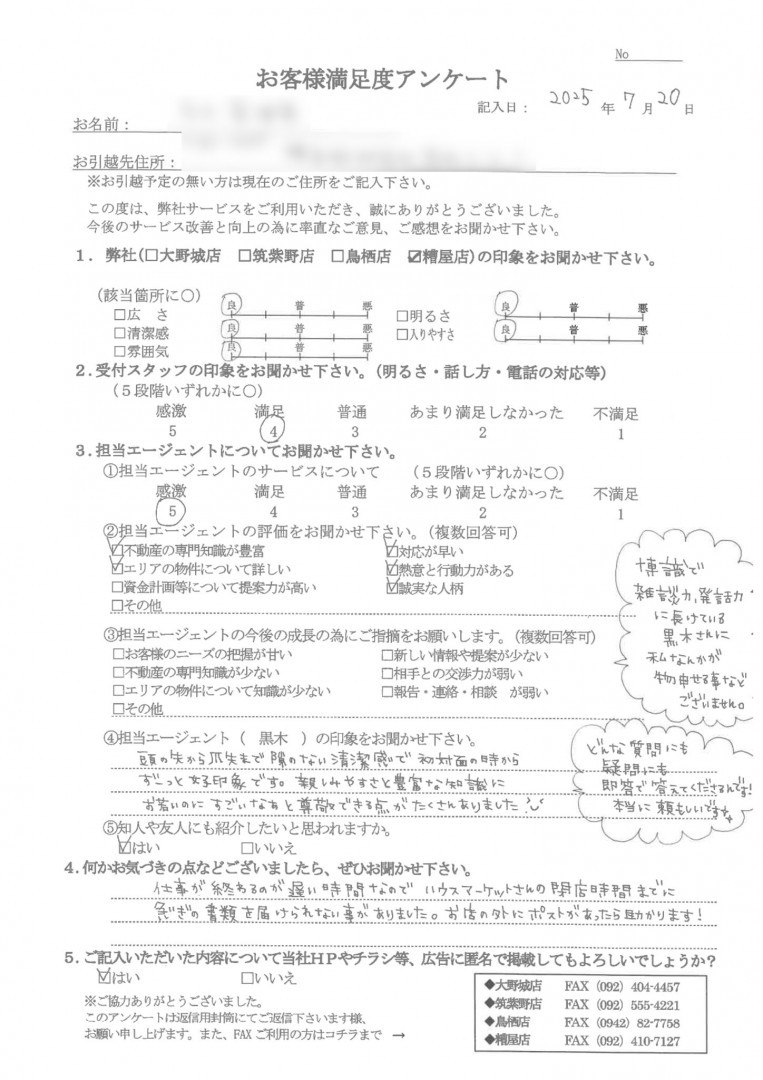 No
お客様満足度アンケート
記入日： 2025 年 7 月 20 日
お名前：
お引越先住所：
※お引越予定の無い方は現在のご住所をご記入下さい。
この度は、弊社サービスをご利用いただき、誠にありがとうございました。
今後のサービス改善と向上の為に率直なご意見、ご感想をお聞かせ下さい。
1．弊社(□大野城店 □筑紫野店 □鳥栖店 ☑糟屋店)の印象をお聞かせ下さい。
(該当箇所に○)
□広 さ 良 普 悪 □明るさ 良 普 悪
□清潔感 良 普 悪 □入りやすさ 良 普 悪
□雰囲気 良 普 悪
2.受付スタッフの印象をお聞かせ下さい。(明るさ・話し方・電話の対応等)
(５段階いずれかに○)
感激 満足 普通 あまり満足しなかった 不満足
5 4 3 2 1
3.担当エージェントについてお聞かせ下さい。
①担当エージェントのサービスについて (５段階いずれかに○)
感激 満足 普通 あまり満足しなかった 不満足
5 4 3 2 1
②担当エージェントの評価をお聞かせ下さい。(複数回答可)
☑不動産の専門知識が豊富 ☑対応が早い
☑エリアの物件について詳しい ☑熱意と行動力がある
□資金計画等について提案力が高い ☑誠実な人柄
□その他
博識で
雑談力、発話力
に長けている
黒木さんに
私なんかが
物申せる事など
ございません。
③担当エージェントの今後の成長の為にご指摘をお願いします。(複数回答可)
□お客様のニーズの把握が甘い □新しい情報や提案が少ない
□不動産の専門知識が少ない □相手との交渉力が弱い
□エリアの物件について知識が少ない □報告・連絡・相談 が弱い
□その他
④担当エージェント（ 黒木 ）の印象をお聞かせ下さい。
頭の先から爪先まで隙のない清潔感で初対面の時から
ずーっと好印象です。親しみやすさと豊富な知識に
お若いのにすごいなあと尊敬できる点がたくさんありました！
どんな質問にも
疑問にも
即答で答えてくださるんです!
本当に頼もしいです
⑤知人や友人にも紹介したいと思われますか。
☑はい □いいえ
4.何かお気づきの点などございましたら、ぜひお聞かせ下さい。
仕事が終わるのが遅い時間なので ハウスマーケットさんの閉店時間までに
急ぎの書類を届けられない事がありました。お店の外にポストがあったら助かります！
5.ご記入いただいた内容について当社HPやチラシ等、広告に匿名で掲載してもよろしいでしょうか？
☑はい □いいえ
※ご協力ありがとうございました。
このアンケートは返信用封筒にてご返信下さいます様、
お願い申し上げます。また、FAX ご利用の方はコチラまで →
◆大野城店 FAX (092) 404-4457
◆筑紫野店 FAX (092) 555-4221
◆鳥栖店 FAX (0942) 82-7758
◆糟屋店 FAX (092) 410-7127